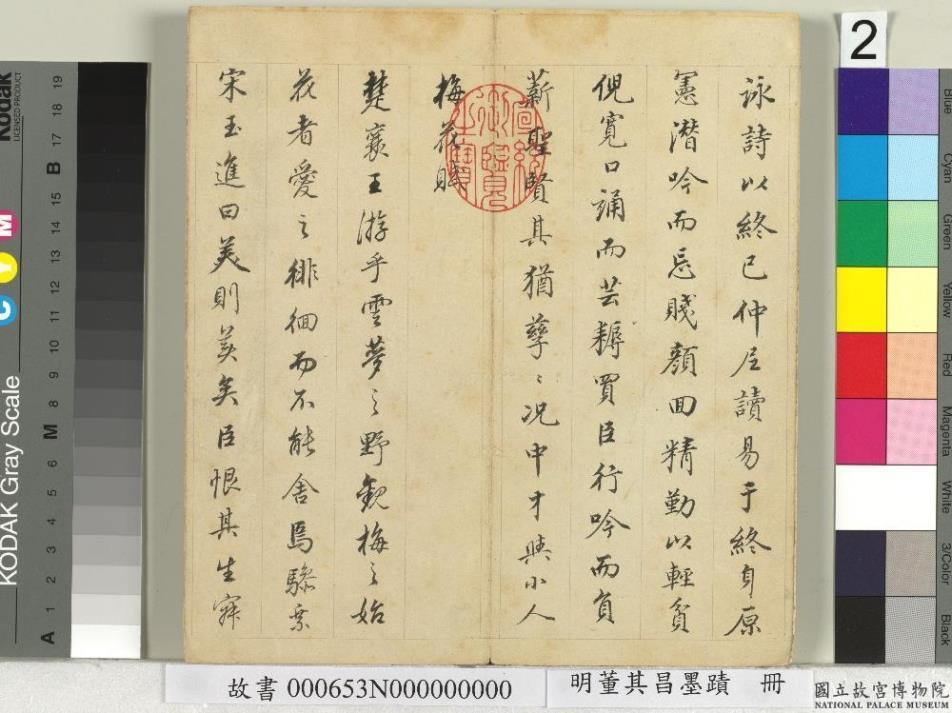 詠詩以終已仲尼讀易于終身原
憲潛吟而忘賤顏回精勤以輕貧
倪寬口誦而芸耨買臣行吟而負
薪聖賢其猶孳〻況中才與小人
梅花賦
楚襄王游乎雲夢之野觀梅之始
花者愛之徘徊而不能舍焉驂乘
宋玉進曰美則美矣臣恨其生寂
宣統御覽之寶
2
Kodak
LICENSED PRODUCT
KODAK Gray Scale
C Y M
A 1 2 3 4 5 6 M 8 9 10 11 12 13 14 15 B 17 18 19
Blue
Cyan
Green
Yellow
Red
Magenta
White
3/Color
Black
故書 000653N000000000
明董其昌墨蹟 冊
國立故宮博物院
NATIONAL PALACE MUSEUM